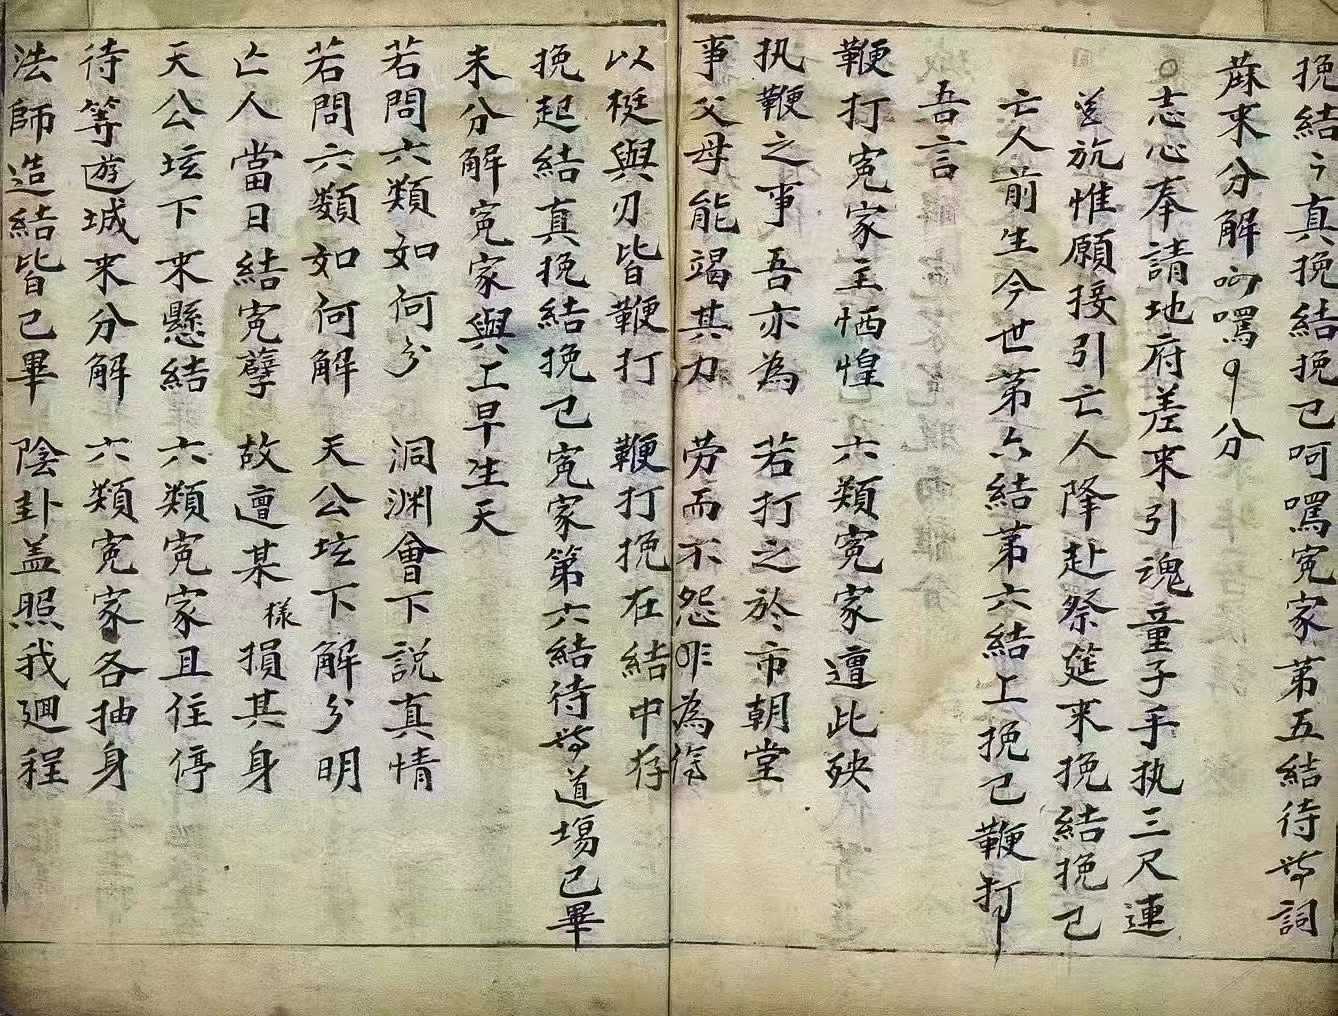 挽結〻真挽結挽已呵嘱寃家第五結待等詞
蔴来分解
志心奉請地府差来引魂童子手执三尺連
惟願接引亡人降赴祭筵来挽結挽已
亡人前生今世第六結第六結上挽已鞭打
吾言
鞭打寃家主恓惶 六類寃家遭此殃
执鞭之事吾亦為 若打之於市朝堂
事父母能竭其力 劳而不怨非為
以梃與刃皆鞭打 鞭打挽在結中存
挽起結真挽結挽已寃家第六結待等道場已畢
未分解寃家與工早生天
若問六類如何分 洞渊會下説真情
若問六類如何解 天公坛下解分明
亡人當日結寃孽 故遭某様損其身
天公坛下来懸結 六類寃家且住停
待等遊城来分解 六類寃家各抽身
法師造結皆已畢 陰卦盖照我廽程